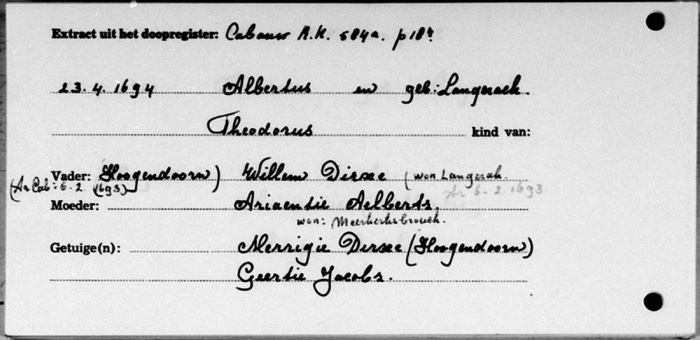 Extract uit het doopregister: Cabauw R.K. 584a. p18v
23.4.1694 Albertus en geb: Langerack.
Theodorus kind van:
Vader: Hoogendoorn) Willem Dirxe (won Langerak.
(Ar Cab: 6-2 1693) Ar 6-2 1693
Moeder: Ariaentie Aelberts,
won: Meerkerksbroeck.
Getuige(n): Merrigie Dirxe (Hoogendoorn)
Geertie Jacobs.